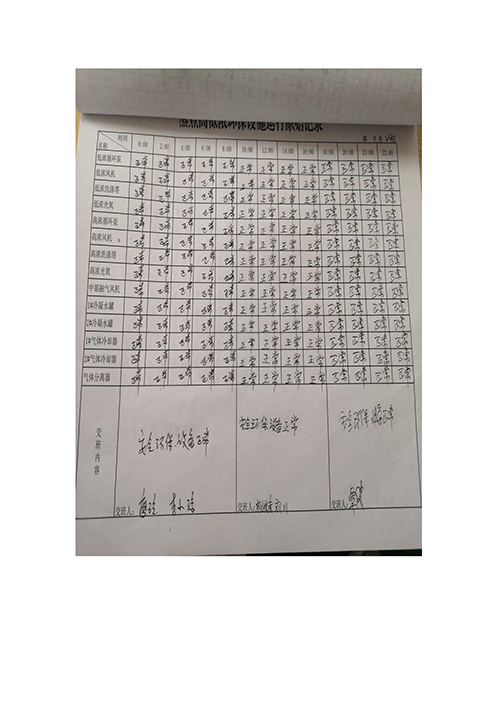 蒸煮高低浓环保设施运行原始记录
年 8月26日
时间 名称 0:00 2:00 4:00 6:00 8:00 10:00 12:00 14:00 16:00 18:00 20:00 21:00 22:00
低浓循环泵 正常 正常 正常 正常 正常 正常 正常 正常 正常 正常 正常 正常 正常
低浓风机 正常 正常 正常 正常 正常 正常 正常 正常 正常 正常 正常 正常 正常
低浓洗涤塔 正常 正常 正常 正常 正常 正常 正常 正常 正常 正常 正常 正常 正常
低浓光氧 正常 正常 正常 正常 正常 正常 正常 正常 正常 正常 正常 正常 正常
高浓循环泵 正常 正常 正常 正常 正常 正常 正常 正常 正常 正常 正常 正常 正常
高浓风机 正常 正常 正常 正常 正常 正常 正常 正常 正常 正常 正常 正常 正常
高浓洗涤塔 正常 正常 正常 正常 正常 正常 正常 正常 正常 正常 正常 正常 正常
高浓光氧 正常 正常 正常 正常 正常 正常 正常 正常 正常 正常 正常 正常 正常
中部抽气风机 正常 正常 正常 正常 正常 正常 正常 正常 正常 正常 正常 正常 正常
1#冷凝水罐 正常 正常 正常 正常 正常 正常 正常 正常 正常 正常 正常 正常 正常
2#冷凝水罐 正常 正常 正常 正常 正常 正常 正常 正常 正常 正常 正常 正常 正常
1#气体冷却器 正常 正常 正常 正常 正常 正常 正常 正常 正常 正常 正常 正常 正常
2#气体冷却器 正常 正常 正常 正常 正常 正常 正常 正常 正常 正常 正常 正常 正常
气体分离器 正常 正常 正常 正常 正常 正常 正常 正常 正常 正常 正常 正常 正常
交班内容
安全环保设备正常
安全环保设备正常
安全环保设备正常
交班人:
交班人:
交班人: